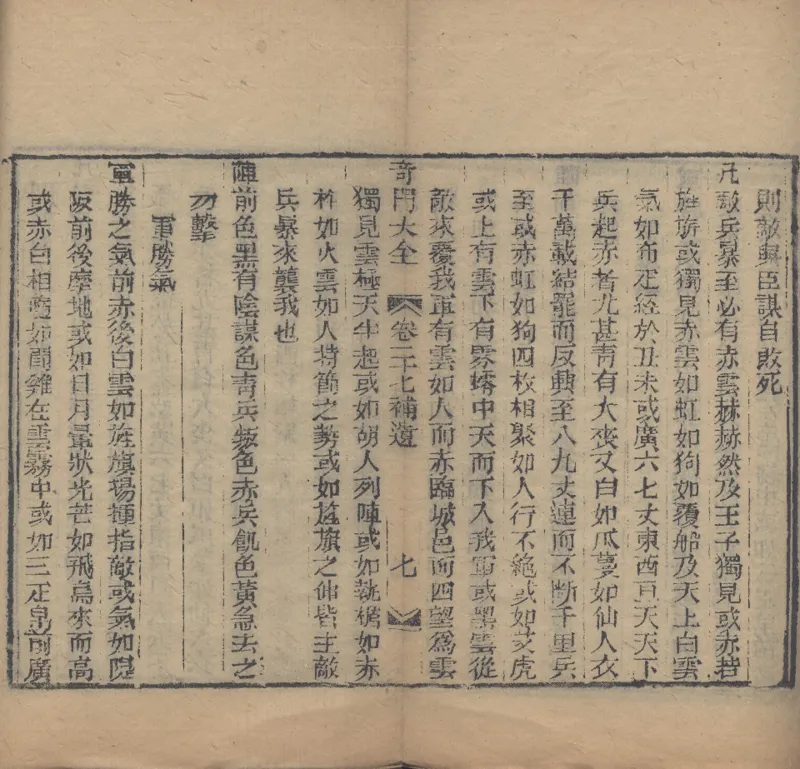 則敵與臣謀自敗死
凡敵兵暴至必有赤雲赫赫然及王子獨見或赤若
旌旂或獨見赤雲如虹如狗如覆船及天上白雲
氣如布疋經於丑未或廣六七丈東西亘天天下
兵起赤者尤甚青有大喪又白如瓜蔓如仙人衣
千萬載結罷而反興至八九丈連而不斷千里兵
至或赤虹如狗四枚相聚如人行不絶或如艾虎
或上有雲下有雰霿中天而下入我軍或黑雲從
敵來覆我軍有雲如人而赤臨城邑而四望爲雲
奇門大全 卷二十七補遺 七
獨見雲極天牛起或如胡人列陣或如執楯如赤
杵如火雲如人持簡之勢或如旌旗之伸皆主敵
兵暴來襲我也
陣前色黑有陰謀色青兵叛色赤兵飢色黃急去之
勿擊
軍勝氣
軍勝之氣前赤後白雲如旌旗揚揮指敵或氣如隄
阪前後摩地或如日月暈狀光芒如飛鳥來而高
或赤白相隨如鬭雞在雲霧中或如三疋帛前廣